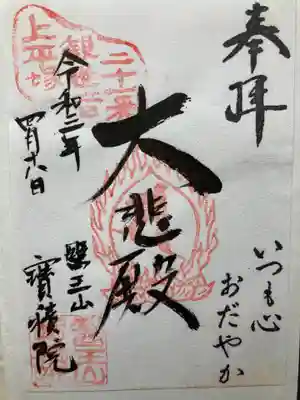 奉拝
いつも心
おだやか
大悲殿
令和三年
四月十八日
醫王山
寶積院
二十一番
上平塚